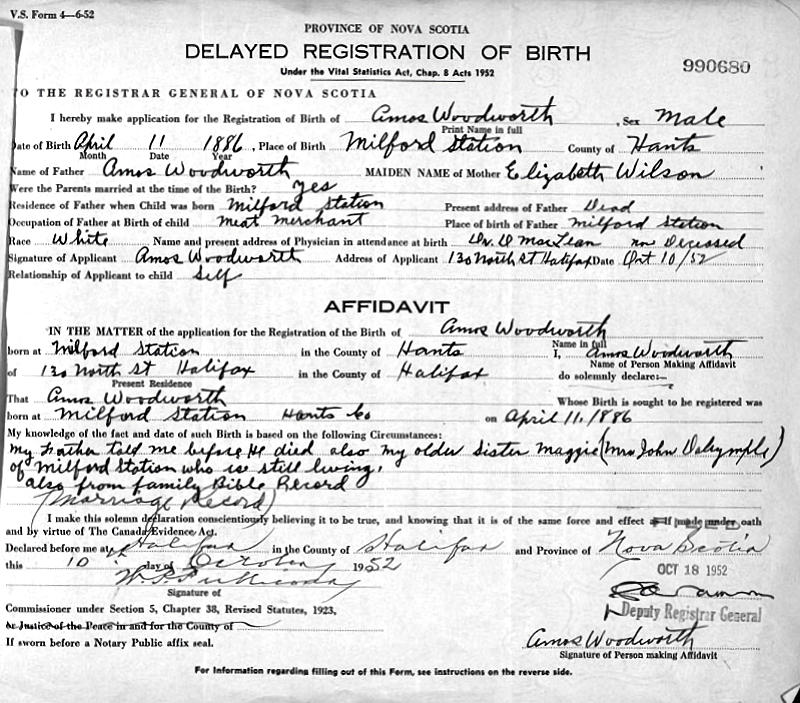 V.S. Form 4—6-52
PROVINCE OF NOVA SCOTIA
DELAYED REGISTRATION OF BIRTH
990680
Under the Vital Statistics Act, Chap. 8 Acts 1952
TO THE REGISTRAR GENERAL OF NOVA SCOTIA
I hereby make application for the Registration of Birth of Amos Woodworth, Sex Male
Print Name in full
Date of Birth April 11 1886, Place of Birth Milford Station County of Hants
Month Date Year
Name of Father Amos Woodworth MAIDEN NAME of Mother Elizabeth Wilson
Were the Parents married at the time of the Birth? Yes
Residence of Father when Child was born Milford Station Present address of Father Dead
Occupation of Father at Birth of child Meat Merchant Place of birth of Father Milford Station
Race White Name and present address of Physician in attendance at birth Dr. D MacLean Deceased
Signature of Applicant Amos Woodworth Address of Applicant 130 North St Halifax Date Oct 10/52
Relationship of Applicant to child Self
AFFIDAVIT
IN THE MATTER of the application for the Registration of the Birth of Amos Woodworth
Name in full
born at Milford Station in the County of Hants I, Amos Woodworth
Name of Person Making Affidavit
of 130 North St Halifax in the County of Halifax do solemnly declare:—
Present Residence
That Amos Woodworth Whose Birth is sought to be registered was
born at Milford Station Hants Co on April 11, 1886
My knowledge of the fact and date of such Birth is based on the following Circumstances:
My Father told me before He died also my older Sister Maggie (Mrs John Dalrymple)
of Milford Station who is still living.
also from family Bible Record
(Marriage Record)
I make this solemn declaration conscientiously believing it to be true, and knowing that it is of the same force and effect as if made under oath
and by virtue of The Canada Evidence Act.
Declared before me at Halifax in the County of Halifax and Province of Nova Scotia
this 10 day of October 1952
OCT 18 1952
Signature of
Deputy Registrar General
Commissioner under Section 5, Chapter 38, Revised Statutes, 1923,
or Justice of the Peace in and for the County of
Amos Woodworth
If sworn before a Notary Public affix seal.
Signature of Person making Affidavit
For Information regarding filling out of this Form, see instructions on the reverse side.